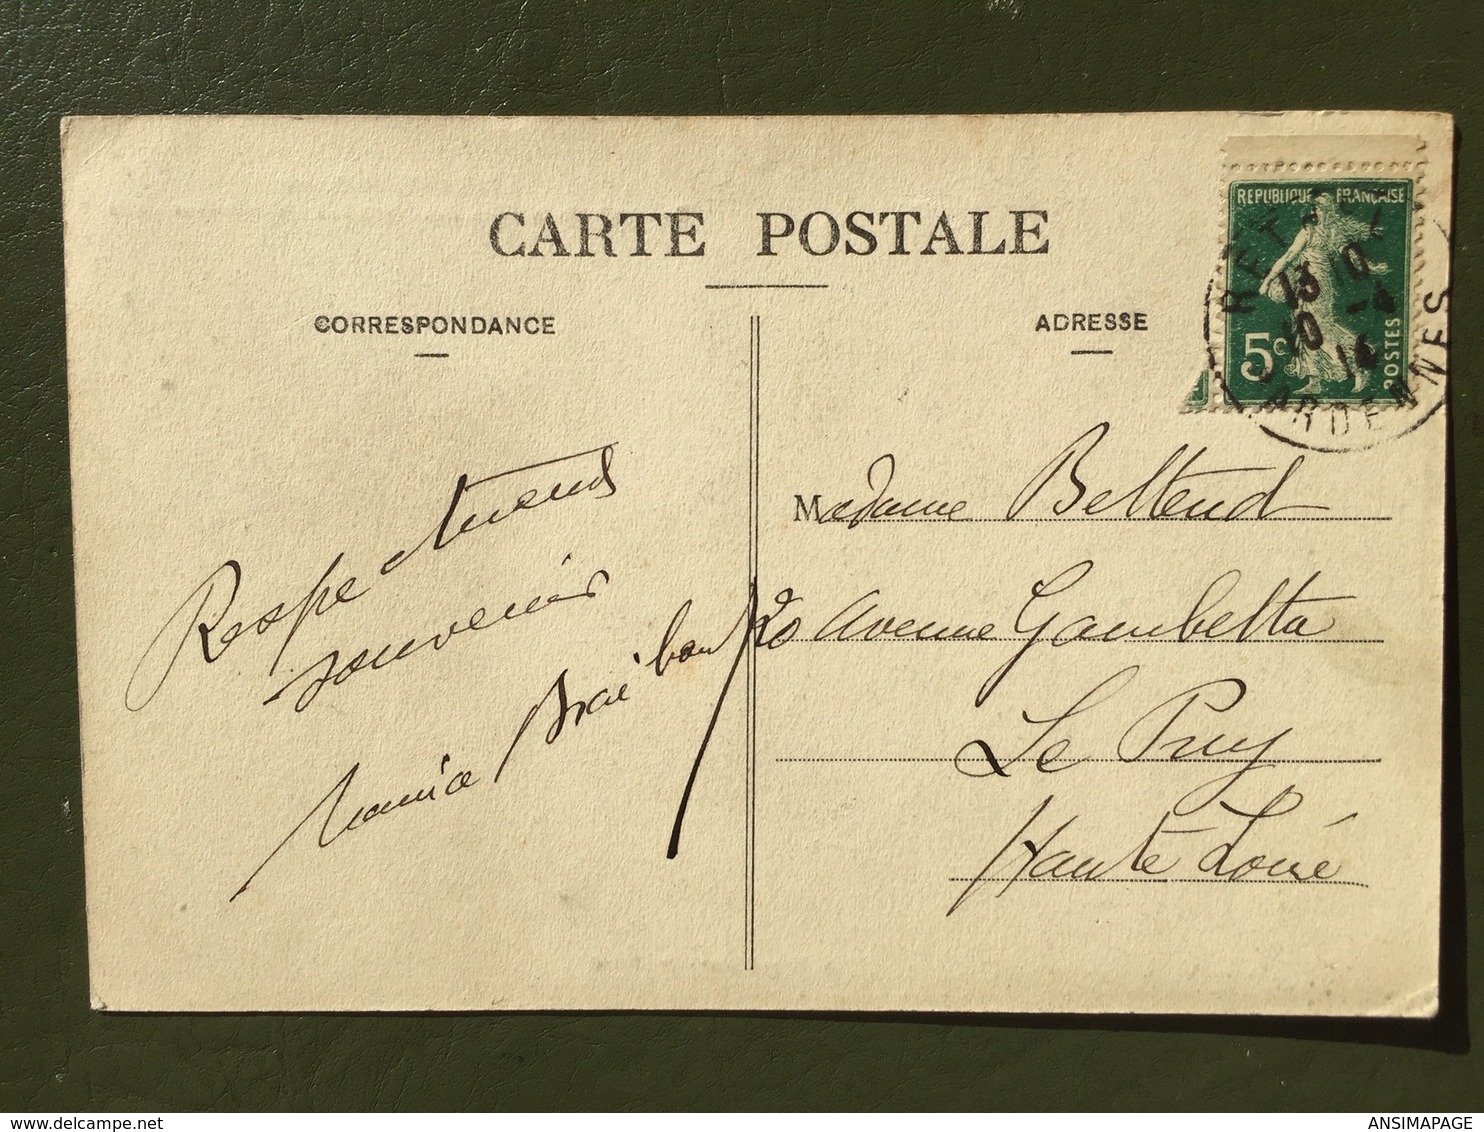 CARTE POSTALE
CORRESPONDANCE
ADRESSE
REPUBLIQUE FRANÇAISE
5c
POSTES
RETHEL
13 10
10 -4
14
ARDENNES
Respectueux
souvenirs
Maurice
Madame
20 Avenue Gambetta
Le Puy
Haute Loire
www.delcampe.net
ANSIMAPAGE